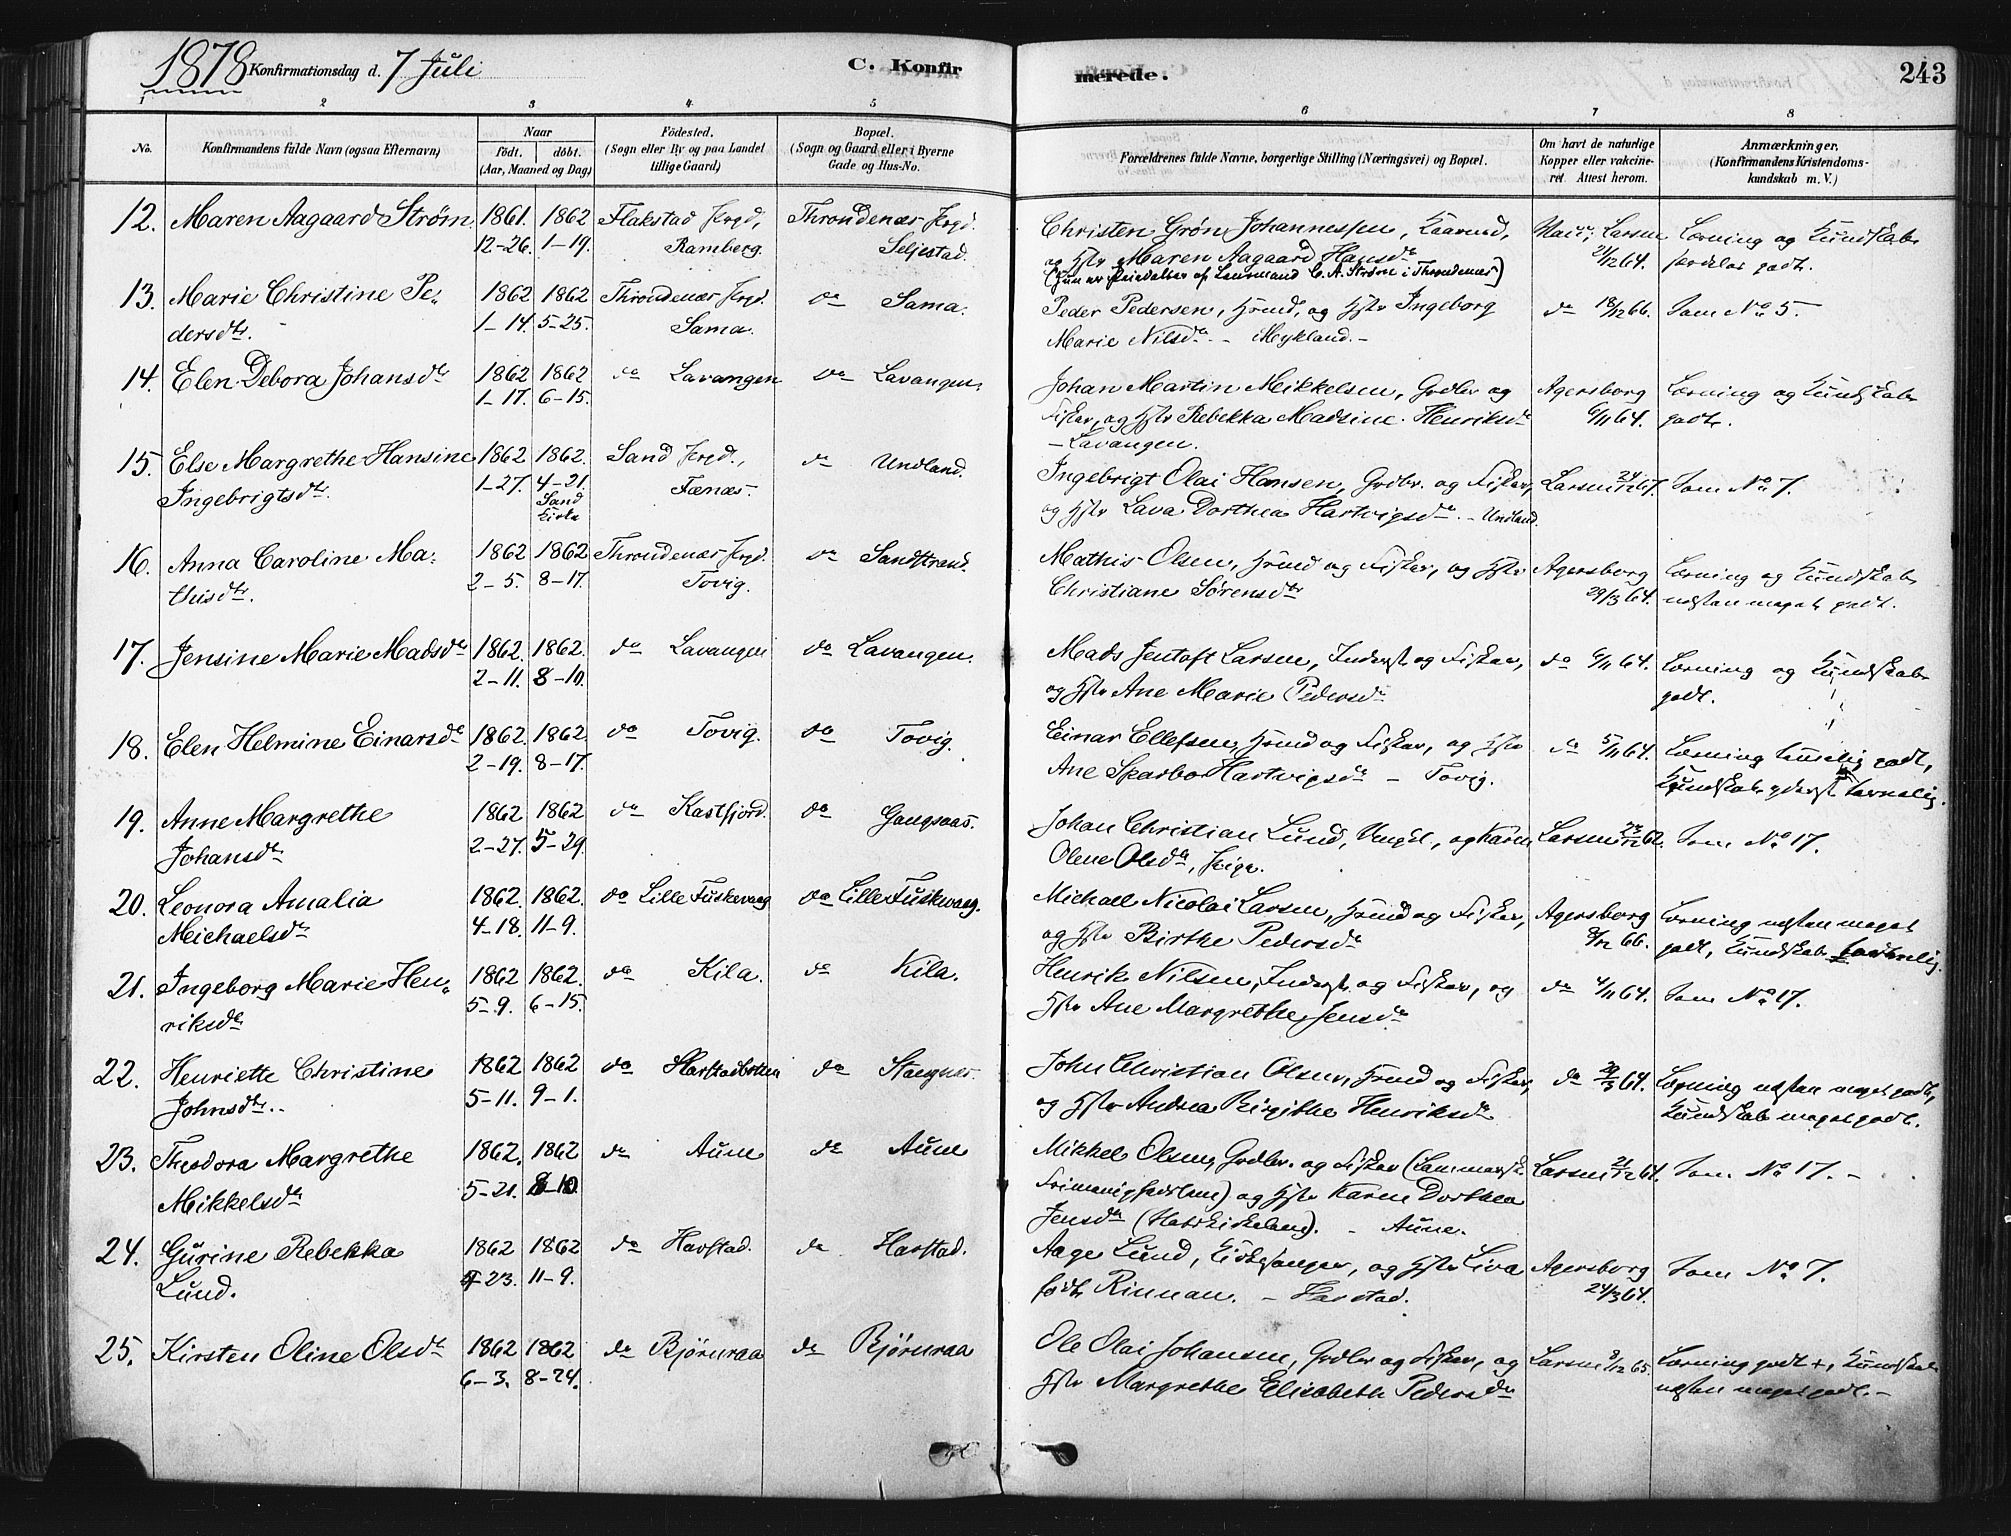 1878 Konfirmationsdag d. 7 Juli
C. Konfirmerede.
243
1 2 3 4 5 6 7 8
No.
Konfirmandens fulde Navn (ogsaa Efternavn)
Naar
født. døbt.
(Aar, Maaned og Dag)
Fødested.
(Sogn eller By og paa Landet
tillige Gaard)
Bopæl.
(Sogn og Gaard eller i Byerne
Gade og Hus-No.
Forældrenes fulde Navne, borgerlige Stilling (Næringsvei) og Bopæl.
Om havt de naturlige
Kopper eller vakcine-
ret. Attest herom.
Anmærkninger.
(Konfirmandens Kristendoms-
kundskab m. V.)
12. Maren Aagaard Strøm 1861. 1862 Flakstad Prgd, Throndenæs Prgd. Christen Grøn Johannessen, Larsen Lærning og Kundskab
12-26. 1-19. Ramberg. Seljestad. og Hstr Maren Aagaard Hansdr 2/12 64. godt.
(Hun er Pleiedatter af Lensmand C. A. Strøm i Throndenæs)
13. Marie Christine Pe- 1862 1862 Throndenæs Prgd. do Sama. Peder Pedersen, Hmnd, og Hstr Ingeborg do 18/12 66. Som No 5.
dersdtr. 1-14. 5-25. Sama. Marie Nilsdr. - Mykland. -
14. Elen Debora Johansdr 1862 1862 do Lavangen do Lavangen. Johan Martin Mikkelsen, Grdbr og Agersborg Lærning og Kundskab
1-17. 6-15. Fisker, og Hstr Rebekka Madsine Henriksdr 6/11 64. godt.
- Lavangen.
15. Else Margrethe Hansine 1862 1862. Sand Prgd., do Undland. Ingebrigt Olai Hansen, Grdbr. og Fisker, Larsen 24/12 67. Som No 7.
Ingebrigtsdtr. 1-27. 4-21. Fænæs. og Hstr Lava Dorthea Hartvigsdr. - Undland.
Sand
Kirke
16. Anna Caroline Ma- 1862 1862 Throndenæs Prgd. do Sandstrand. Mathis Olsen, Hmnd og Fisker, og Hstr Agersborg Lærning og Kundskab
thisdtr. 2-5. 8-17. Tovig. Christiane Sørensdtr 29/3 64. næsten meget godt.
17. Jensine Marie Madsdr 1862. 1862. do Lavangen do Lavangen. Mads Jentoft Larsen, Inderst og Fisker, do 6/11 64. Lærning og Kundskab
2-11. 8-10. og Hstr Ane Marie Pedersdr godt.
18. Elen Helmine Einarsdr 1862. 1862. do Tovig. do Tovig. Einar Ellefsen, Hmnd og Fisker, og Hstr do 5/11 64. Lærning temelig godt,
2-19. 8-17. Ane Sparbo Hartvigsdr - Tovig. Kundskab yderst tarvelig.
19. Anne Margrethe 1862 1862 do Kastfjord. do Gangsaas. Johan Christian Lund, Ungkl., og Karen Larsen 62. Som No 17.
Johansdtr 2-27. 5-29. Olene Olsdr, Pige.
20. Leonora Amalia 1862. 1862. do Lille Fuskevaag do Lille Fuskevaag. Michael Nicolai Larsen, Hmnd og Fisker, Agersborg Lærning næsten meget
Michaelsdr 4-18. 11-9. og Hstr Birthe Pedersdr 8/12 66. godt, Kundskab tarvelig.
21. Ingeborg Marie Hen- 1862 1862. do Kila. do Kila. Henrik Nilsen, Inderst og Fisker, og do 4/11 64. Som No 17.
riksdr 5-9. 6-15. Hstr Ane Margrethe Jensdr
22. Henriette Christine 1862 1862 do Harstadbotten do Stangnes. John Christian Olsen, Hmnd og Fisker, do 29/3 64. Lærning næsten meget godt,
Johnsdtr. 5-11. 9-1. og Hstr Andrea Birgithe Henriksdr Kundskab meget godt.
23. Theodora Margrethe 1862. 1862 do Aune do Aune Mikkel Olsen, Grdbr. og Fisker Larsen 21/12 61. Som No 17. -
Mikkelsdr 5-21. 8-10. og Hstr Karen Dorthea
Jensdr - Aune.
24. Gurine Rebekka 1862 1862 do Harstad. do Harstad. Aage Lund, Kirkesanger, og Hstr Liva Agersborg Som No 7.
Lund. 23. 11-9. født Rinnan. - Harstad. 24/3 64.
25. Kirsten Oline Olsdtr 1862 1862 do Bjørnraa do Bjørnraa Ole Olai Johansen, Grdbr og Fisker, og Larsen 8/12 65. Lærning godt +, Kundskab
6-3. 8-24. Hstr Margrethe Elisabeth Pedersdr næsten meget godt. -